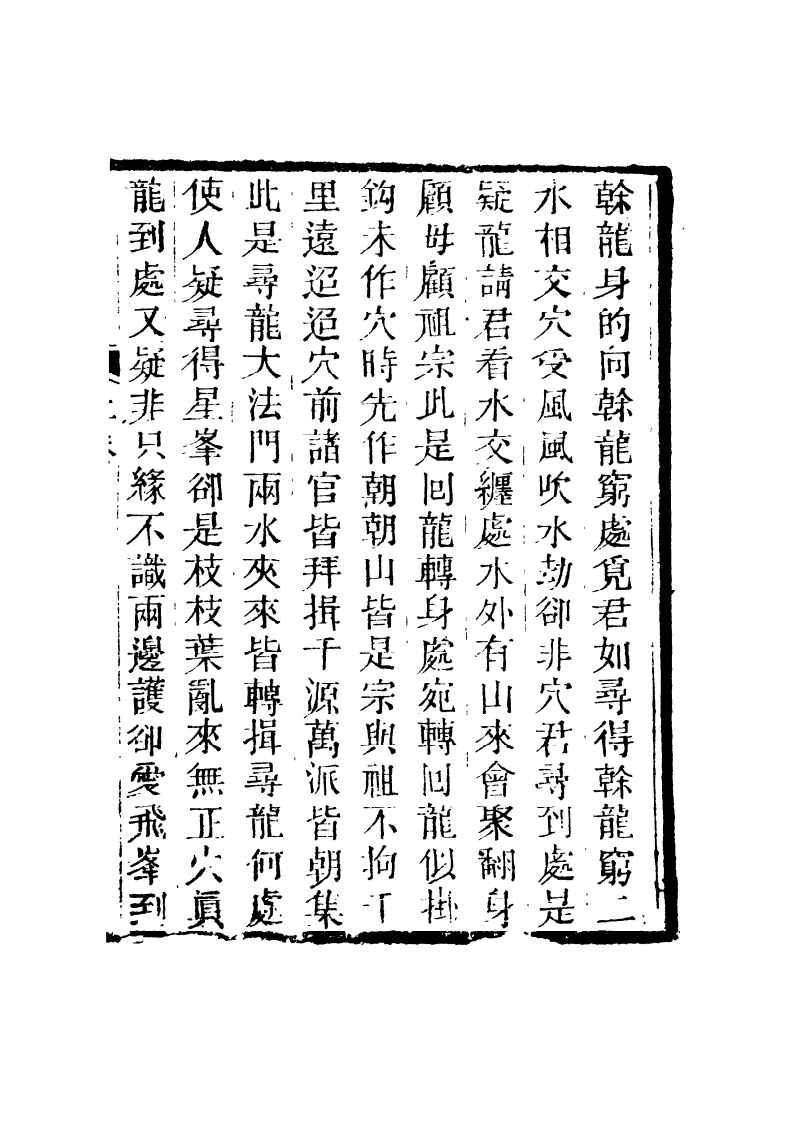 榦龍身的向榦龍窮處覓君如尋得榦龍窮二
水相交穴受風風吹水劫卻非穴君尋到處是
疑龍請君看水交纏處水外有山來會聚翻身
顧母顧祖宗此是回龍轉身處宛轉回龍似掛
鈎未作穴時先作朝朝山皆是宗與祖不拘千
里遠迢迢穴前諸官皆拜揖千源萬派皆朝集
此是尋龍大法門兩水夾來皆轉揖尋龍何處
使人疑尋得星峯卻是枝枝葉亂來無正穴眞
龍到處又疑非只緣不識兩邊護卻愛飛峯到